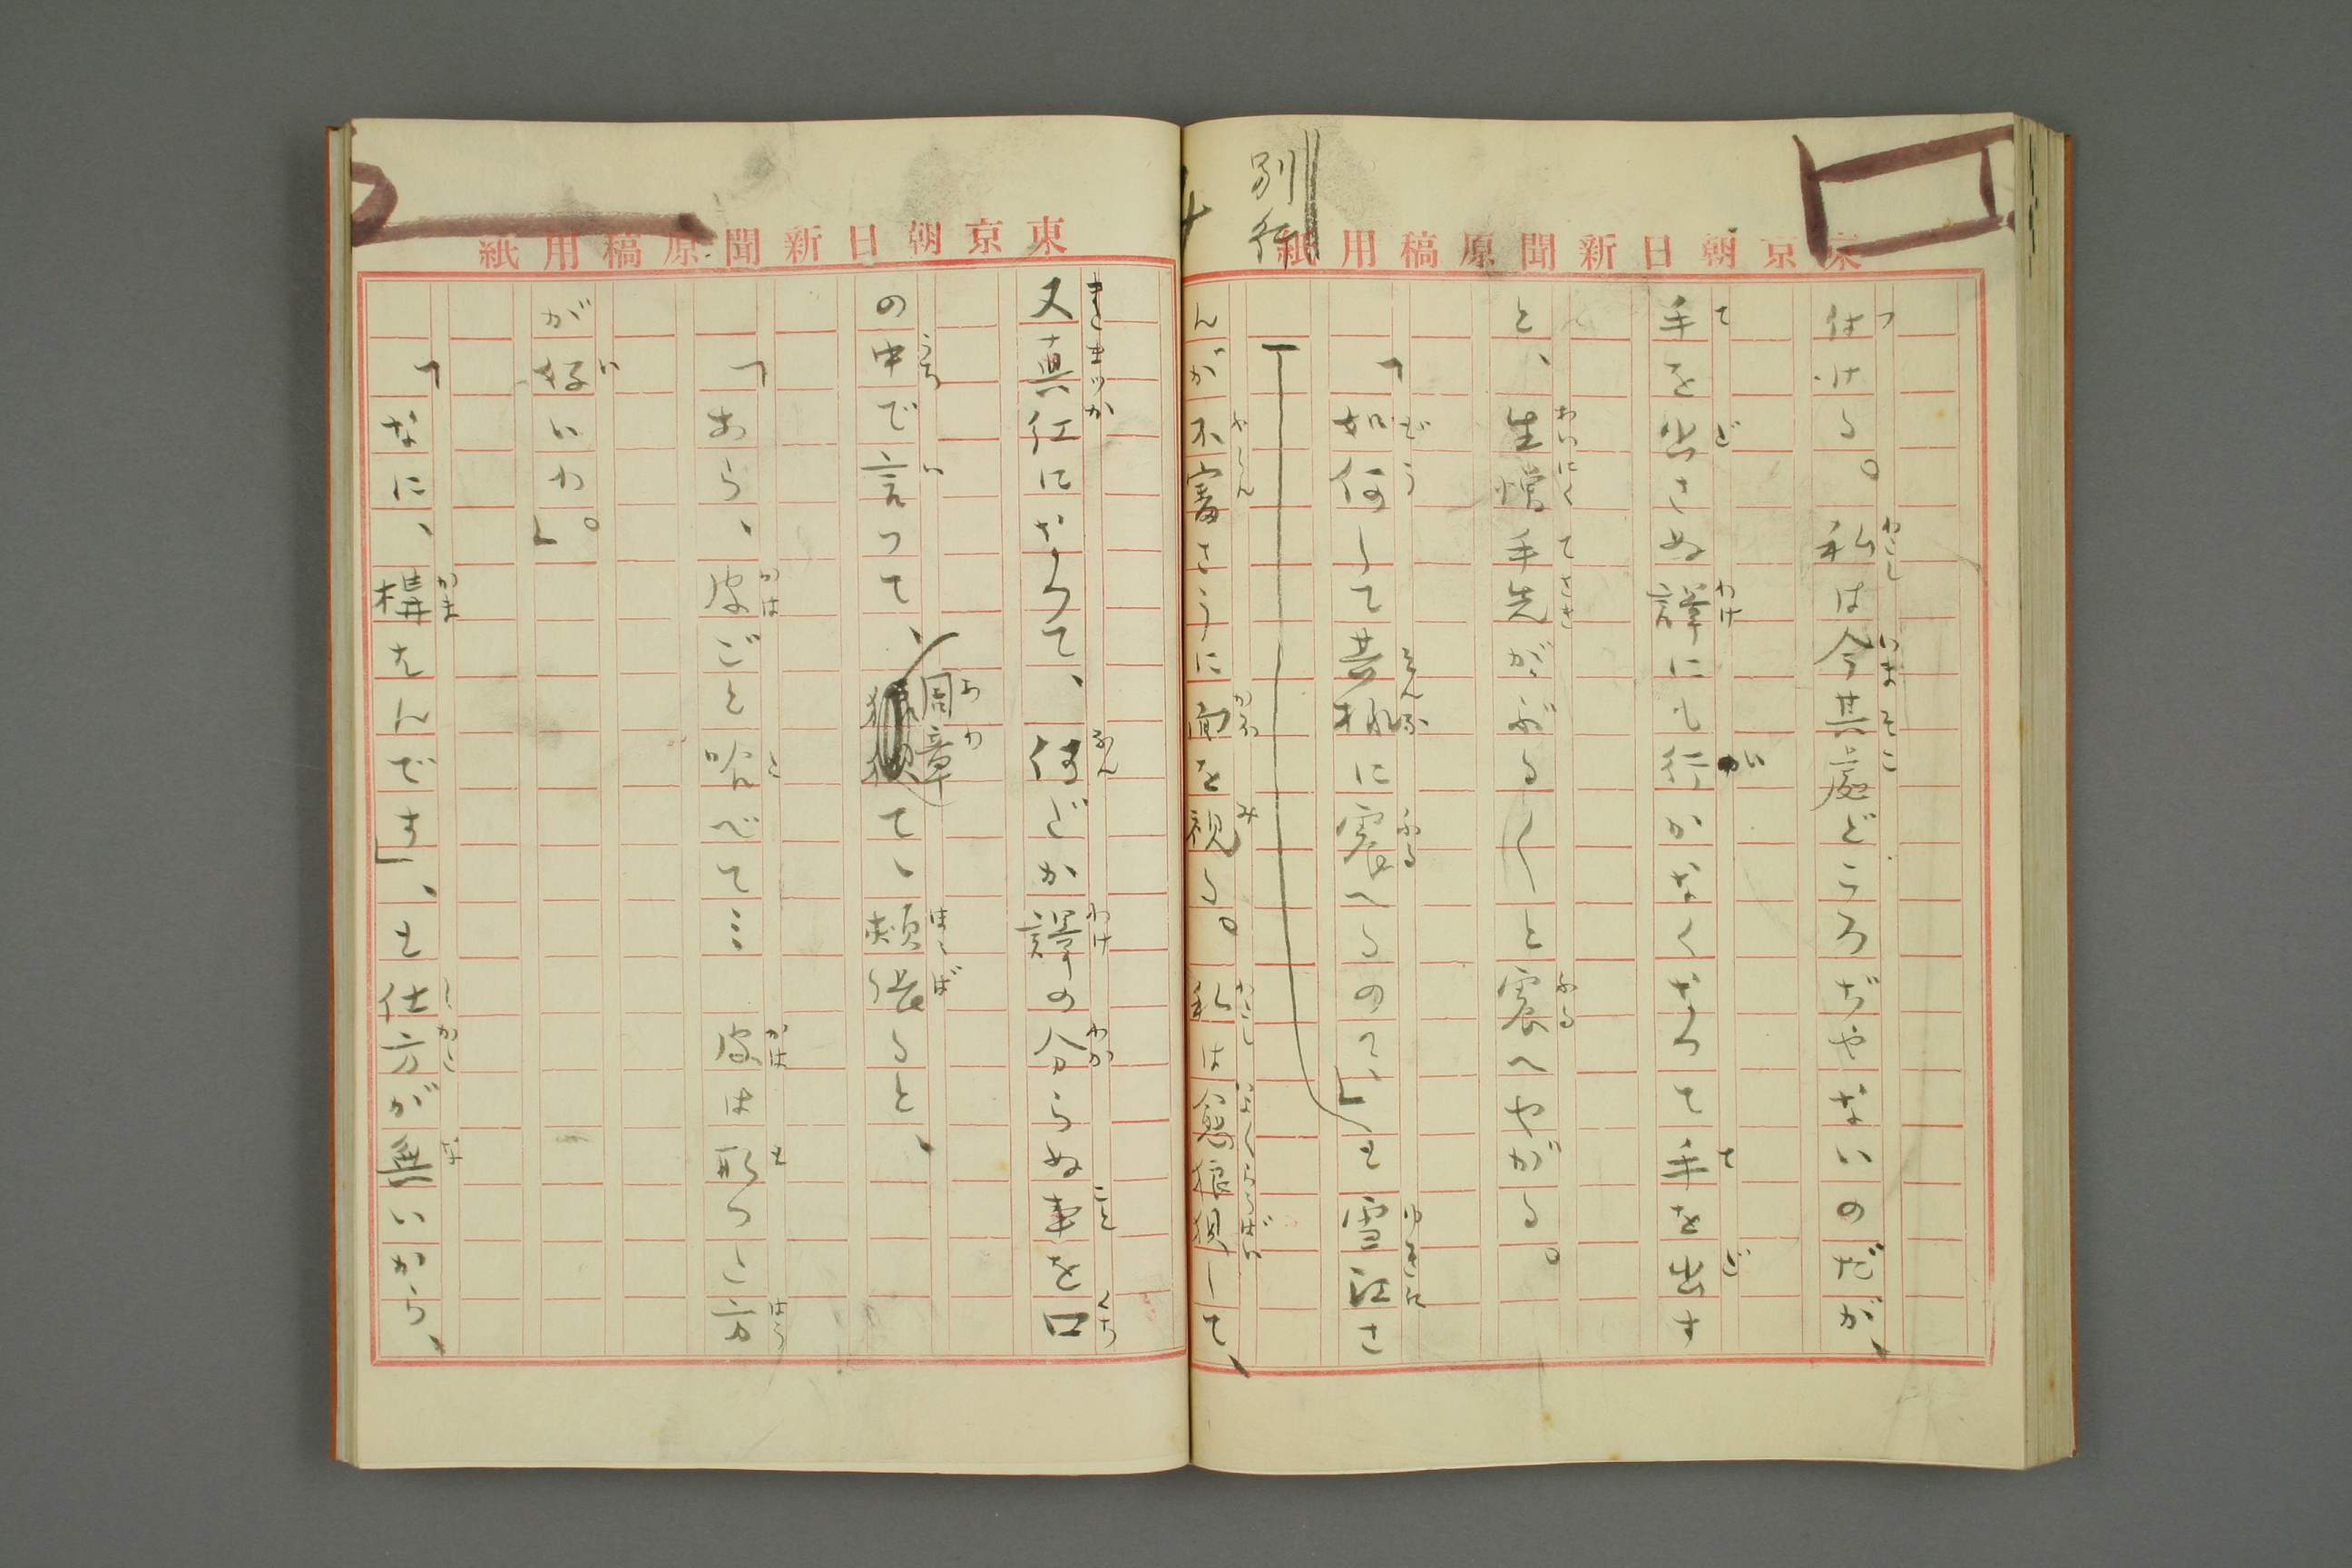 別行
東京朝日新聞原稿用紙
付ける。私は今其處どころぢやないのだが、
手を出さぬ譯にも行かなくなつて手を出す
と、生憎手先がぶる〱と震へやがる。
「如何して其樣に震へるの?」と雪江さ
んが不審さうに面を視る。私は愈狼狽して、
東京朝日新聞原稿用紙
又真紅になつて、何だか譯の分らぬ事を口
の中で言つて、周章て、頬張ると、
「あら、皮ごと喰べて…皮は取つた方
が好いわ。」
「なに、構はんです」、と仕方が無いから、